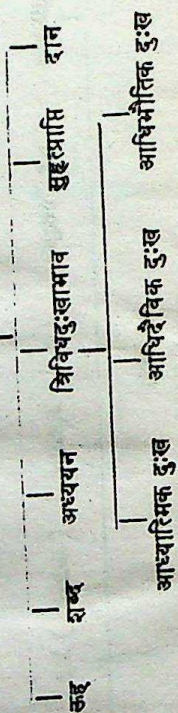 ऊह शब्द अध्ययन त्रिविधदुःखाभाव सुहृत्प्राप्ति दान
आध्यात्मिक दुःख आधिदैविक दुःख आधिभौतिक दुःख